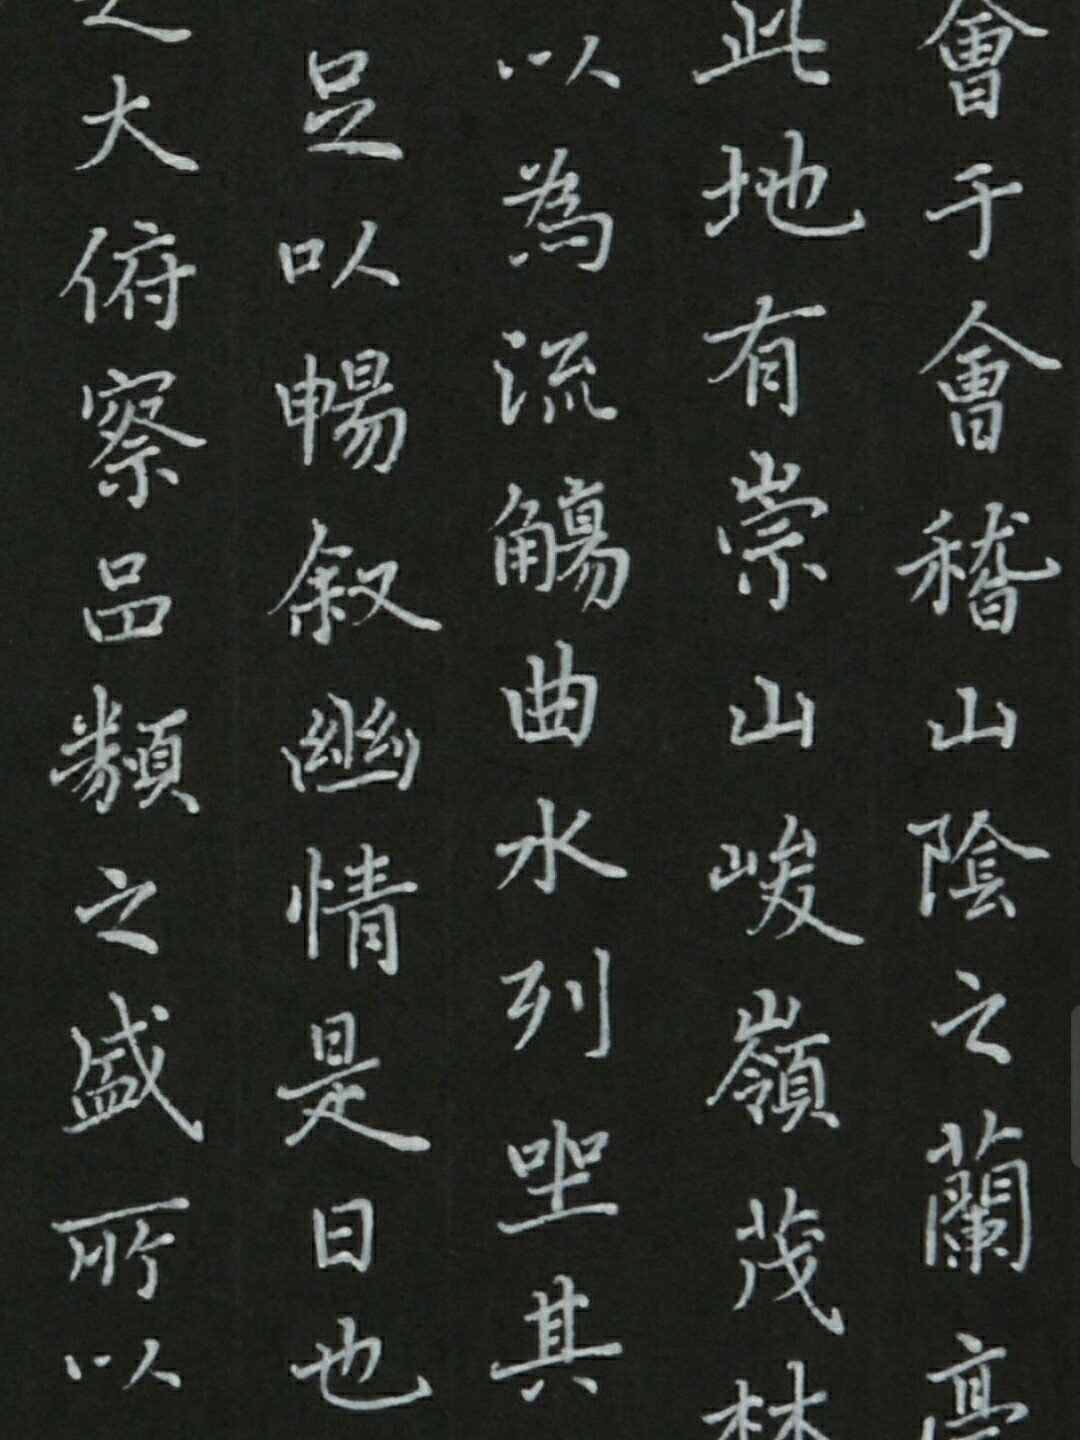 會于會稽山陰之蘭亭
此地有崇山峻嶺茂林
以為流觴曲水列坐其
足以暢叙幽情是日也
之大俯察品類之盛所以